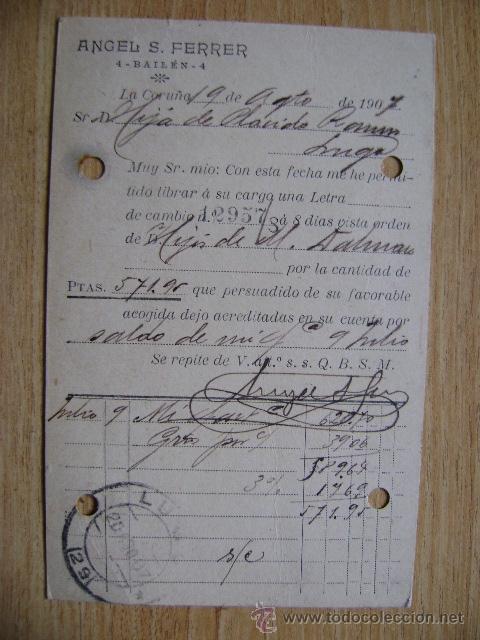 ANGEL S. FERRER
4 - BAILÉN - 4
La Coruña 19 de Agto de 1907
Sr. D. Hija de Plácido
Lugo
Muy Sr. mio: Con esta fecha me he permi-
tido librar á su cargo una Letra
de cambio n.º 12957 á 8 dias vista orden
de Hija de M. Dalmau
por la cantidad de
PTAS. 571.95 que persuadido de su favorable
acogida dejo acreditadas en su cuenta por
saldo de mi fª 9 Julio
Se repite de V. at.º s. s. Q. B. S. M.
Angel S. Ferrer
Julio 9 Mi fact.ª
39 06
589.64
3% 17.69
571.95
s/c
LUGO